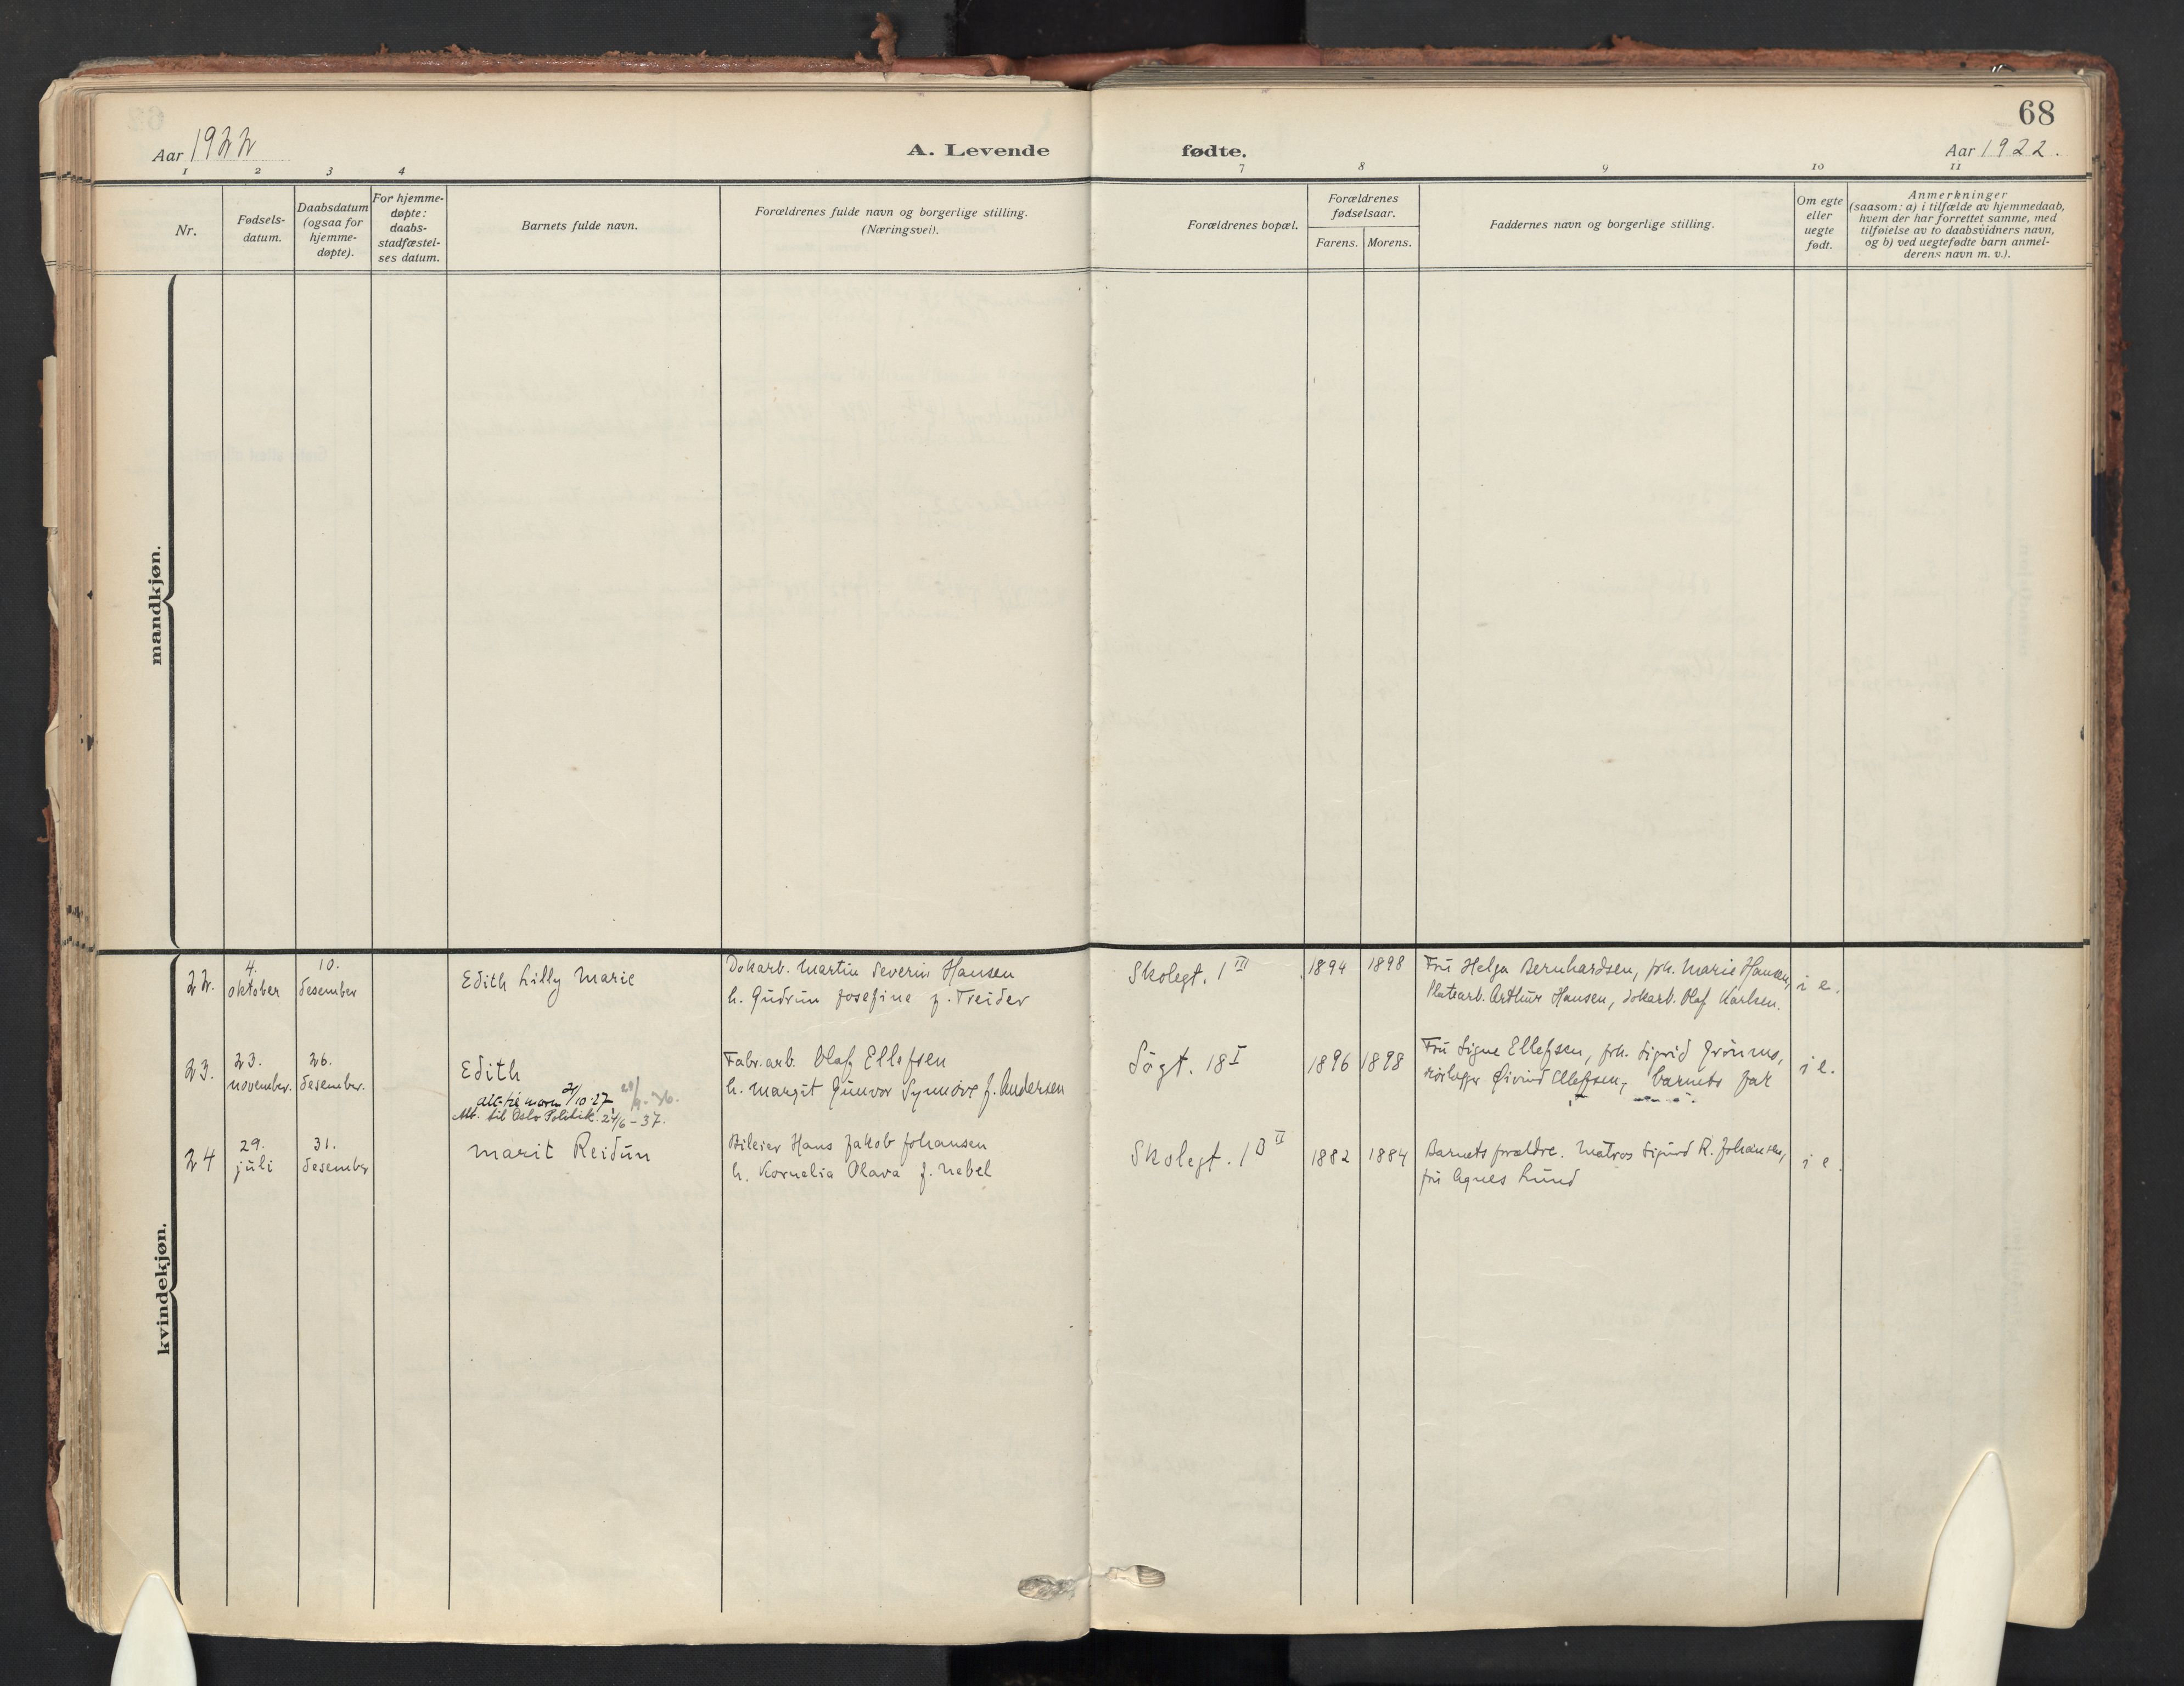 68
Aar 1922
A. Levende
fødte.
Aar 1922.
1 2 3 4 7 8 9 10 11
Nr.
Fødsels-
datum.
Daabsdatum
(ogsaa for
hjemme-
døpte).
For hjemme-
døpte:
daabs-
stadfæstel-
ses datum.
Barnets fulde navn.
Forældrenes fulde navn og borgerlige stilling.
(Næringsvei).
Forældrenes bopæl.
Forældrenes
fødselsaar.
Farens. Morens.
Faddernes navn og borgerlige stilling.
Om egte
eller
uegte
født.
Anmerkninger
(saasom: a) i tilfælde av hjemmedaab,
hvem der har forrettet samme, med
tilføielse av to daabsvidners navn,
og b) ved uegtefødte barn anmel-
derens navn m. v.).
mandkjøn.
kvindekjøn.
22.
4.
oktober
10.
desember
Edith Lilly Marie
Dokarb. Martin Severin Hansen
h. Gudrun Josefine f. Treider
Skolegt. 1 III
1894 1898
Fru Helga Bernhardsen, frk. Marie Hansen,
Platearb. Arthur Hansen, dokarb. Olaf Karlsen.
i e.
23.
23.
november.
26.
desember.
Edith
att. til moren 21/10-27
Att. til Oslo Politik. 24/6-37.
Fabr.arb. Olaf Ellefsen
h. Margit Gunvor Synnøve f. Andersen
Søgt. 18 I
1896 1898
Fru Signe Ellefsen, frk. Sigrid
Øivind Ellefsen, barnets far
i e.
24
29.
juli
31.
desember
Marit Reidun
Bileier Hans Jakob Johansen
h. Kornelia Olava f. Nebel
Skolegt. 1 B II
1882 1884
Barnets forældre. Matros Sigurd R. Johansen,
fru Agnes Lund
i e.